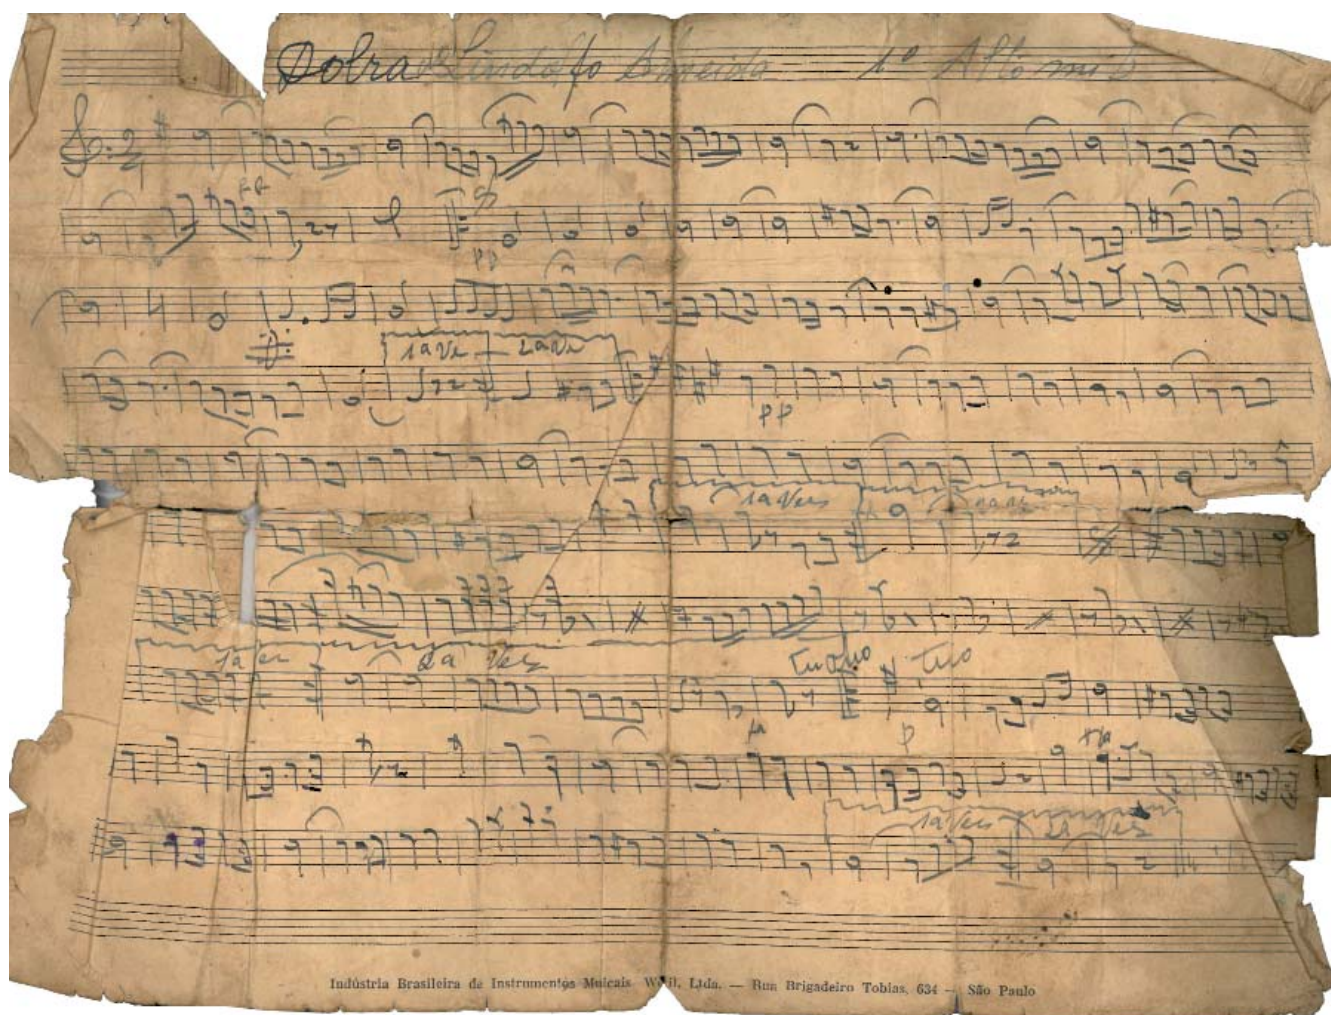 Dobrado Lindolfo Almeida 1º Alto mib
2/4
pp
pp
1a Vez 2a Vez
pp
1a Vez 2a Vez
1a Vez 2a Vez
p
1a Vez 2a Vez
Indústria Brasileira de Instrumentos Muicais Weril, Ltda. — Rua Brigadeiro Tobias, 634 — São Paulo